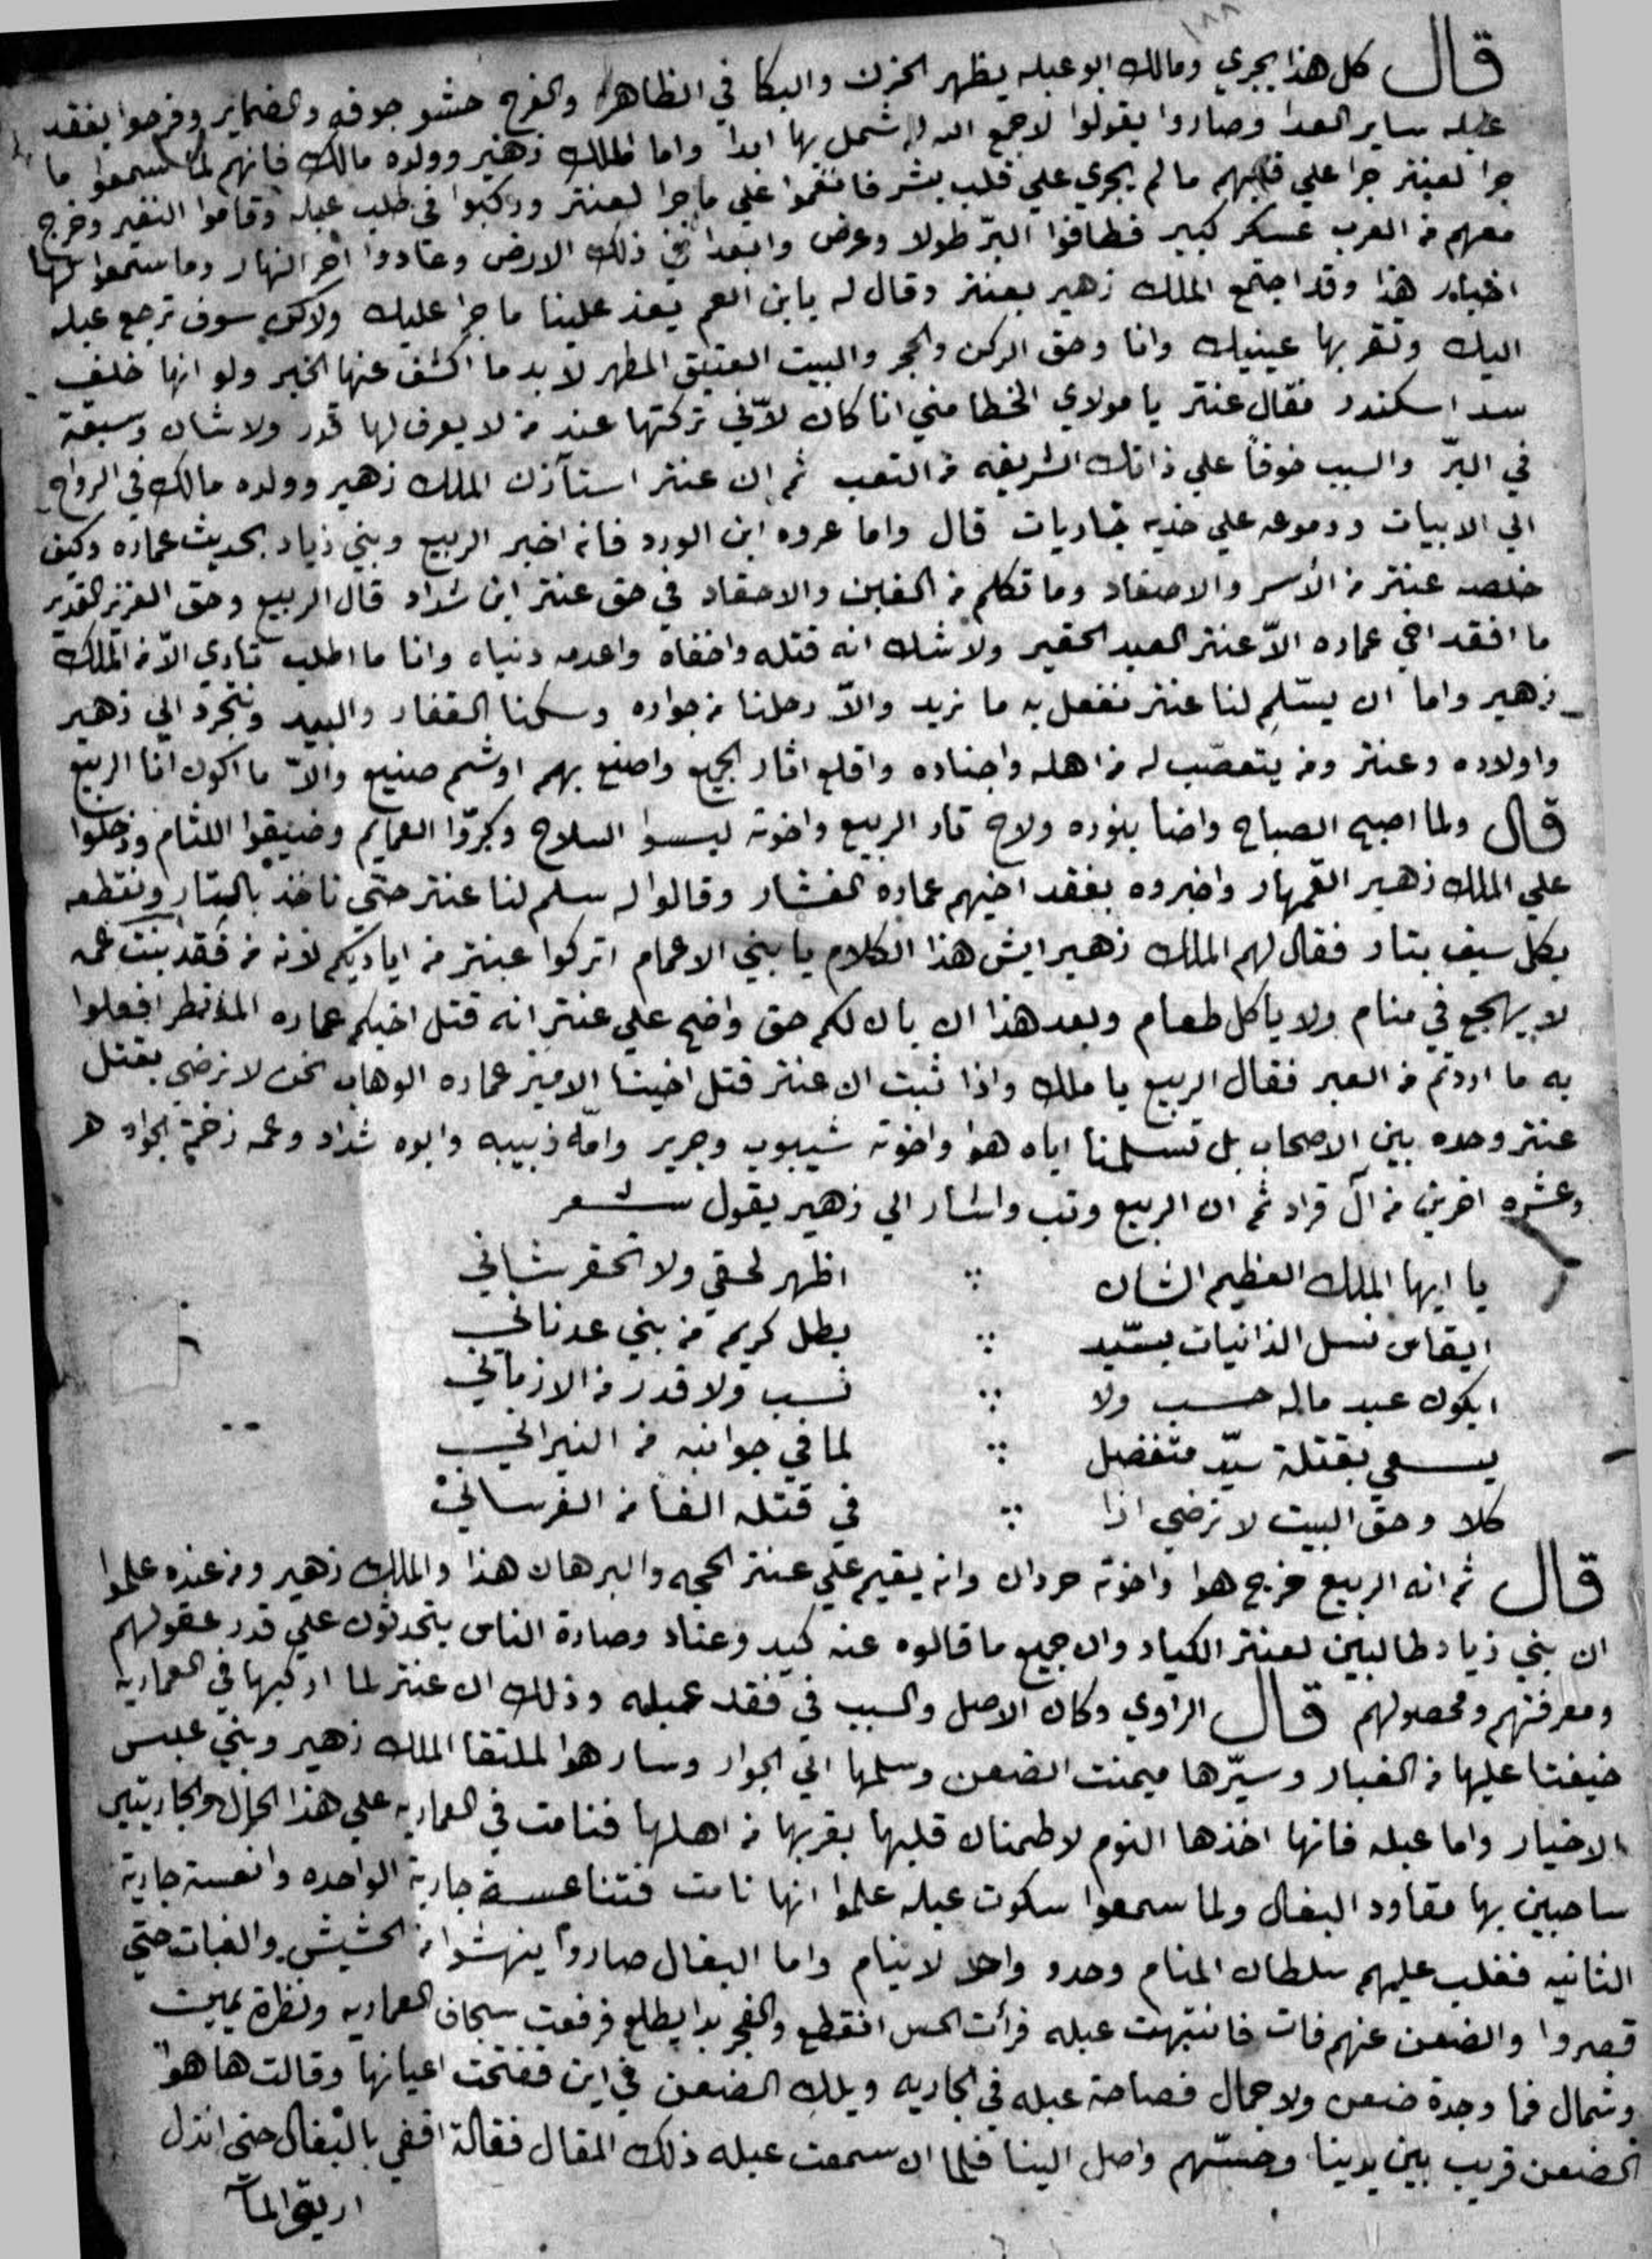 ١٨٨
قال كل هذا يجري ومالك ابو عبله يظهر الحزن والبكا في الظاهر والفرح حشو جوفه والضماير وفرحوا بفقد
عبله ساير العدا وصاروا يقولوا لا جمع الله له شمل بها ابدا واما الملك زهير وولده مالك فانهم لما سمعوا ما
جرا لعنتر جرا علي قلبهم ما لم يجري علي قلب بشر فانغموا علي ما جرا لعنتر وركبوا في طلب عبله وقاموا النفير وخرج
معهم من العرب عسكر كبير فطافوا البرّ طولا وعرض وابعدا في ذلك الارض وعادوا اخر النهار وما سمعوا لها
اخبار هذا وقد اجتمع الملك زهير بعنتر وقال له يابن العم يعز علينا ما جرا عليك ولاكن سوف ترجع عبله
اليك وتقر بها عينيك وانا وحق الركن والحجر والبيت العتيق المطهر لا بد ما اكشف عنها الخبر ولو انها خلف
سد اسكندر فقال عنتر يا مولاي الخطا مني انا كان لانّي تركتها عند من لا يعرف لها قدر ولا شان وسبقة
في البرّ والسبب خوفاً علي ذاتك الشريفه من التعب ثم ان عنتر استآذن الملك زهير وولده مالك في الرواح
الي الابيات ودموعه علي خديه جاريات قال واما عروه ابن الورد فانه اخبر الربيع وبني زياد بحديث عماره وكيف
خلصه عنتر من الأسر والاصفاد وما تكلم من الغبن والاحقاد في حق عنتر ابن شداد قال الربيع وحق العزيز القدير
ما افقد اخي عماره الاّ عنتر العبد الحقير ولا شك انه قتله واخفاه واعدمه دنياه وانا ما اطلب تاري الاّ من الملك
زهير واما ان يسّلم لنا عنتر نفعل به ما نريد والاّ رحلنا من جواره وسكنا القفار والبيد ونتجرد الي زهير
واولاده وعنتر ومن يتعصّب له من اهله واجناده واقلع اثار الجميع واصنع بهم اوشم صنيع والاّ ما اكون انا الربيع
قال ولما اصبح الصباح واضا بنوره ولاح قار الربيع واخوته لبسوا السلاح وكبرّوا العمايم وضيقوا اللثام ودخلوا
علي الملك زهير القمهار واخبروه بفقد اخيهم عماره الفشار وقالوا له سلم لنا عنتر حتي ناخذ بالتار ونقطعه
بكل سيف بتار فقال لهم الملك زهير ايش هذا الكلام يا بني الاعمام اتركوا عنتر من اياديكم لانه من فقد بنت عمه
لا يهجع في منام ولا ياكل طعام وبعد هذا ان بان لكم حق واضح علي عنتر انه قتل اخيكم عماره افعلوا
به ما اردتم من العبر فقال الربيع يا ملك واذا ثبت ان عنتر قتل اخينا الامير عماره الوهاب نحن لا نرضي بقتل
عنتر وحده بين الاصحاب بل تسلمنا اياه هوا واخوته شيبوب وجرير وامّه زبيبه وابوه شداد وعمه زخمة الجواد
وعشره اخرين من آل قراد ثم ان الربيع وتب واشار الي زهير يقول شعر
يا ايها الملك العظيم الشان ∴ اظهر لحقي ولا تحقر شاني
ايقاس نسل الزانيات بسّيد ∴ بطل كريم من بني عدناني
ايكون عبد ماله حسب ولا ∴ نسب ولا قدر من الازماني
يسعي بقتلة سيّد متفضل ∴ لما في جوانبه من النيراني
كلا وحق البيت لا نرضي اذا ∴ في قتله الفا من الفرساني
قال ثم انه الربيع خرج هوا واخوته حردان وانه يقيم علي عنتر الحجه والبرهان هذا والملك زهير ومن عنده علموا
ان بني زياد طالبين لعنتر الكياد وان جميع ما قالوه عنه كيد وعناد وصارة الناس يتحدثون علي قدر عقولهم
ومعرفتهم ومحصولهم قال الراوي وكان الاصل والسبب في فقد عبله وذلك ان عنتر لما اركبها في العماريه
خيفتا عليها من الغبار وسيّرها ميمنت الضعن وسلمها الي الجوار وسار هوا لملتقا الملك زهير وبني عبس
الاخيار واما عبله فانها اخذها النوم لاطمنان قلبها بقربها من اهلها فنامت في العماريه علي هذا الحال والجاريتين
ساحبين بها مقاود البغال ولما سمعوا سكوت عبله علموا انها نامت فتناعسة جارية الواحده وانعسة جارية
الثانيه فغلب عليهم سلطان المنام وحدو واحد لا ينام واما البغال صاروا ينهشوا من الحشيش والنبات حتي
قصروا والضعن عنهم فات فانتبهت عبله فرأت الحس انقطع والفجر بدا يطلع فرفعت سجاف العماريه ونظرة يمين
وشمال فما وجدة ضعن ولا جمال فصاحة عبله في الجاريه ويلك الضعن في اين ففتحت اعيانها وقالت ها هوا
الضعن قريب بين يدينا وحسّهم واصل الينا فلما ان سمعت عبله ذلك المقال فقالة اقفي بالبغال حتى انزل
اريق المآ